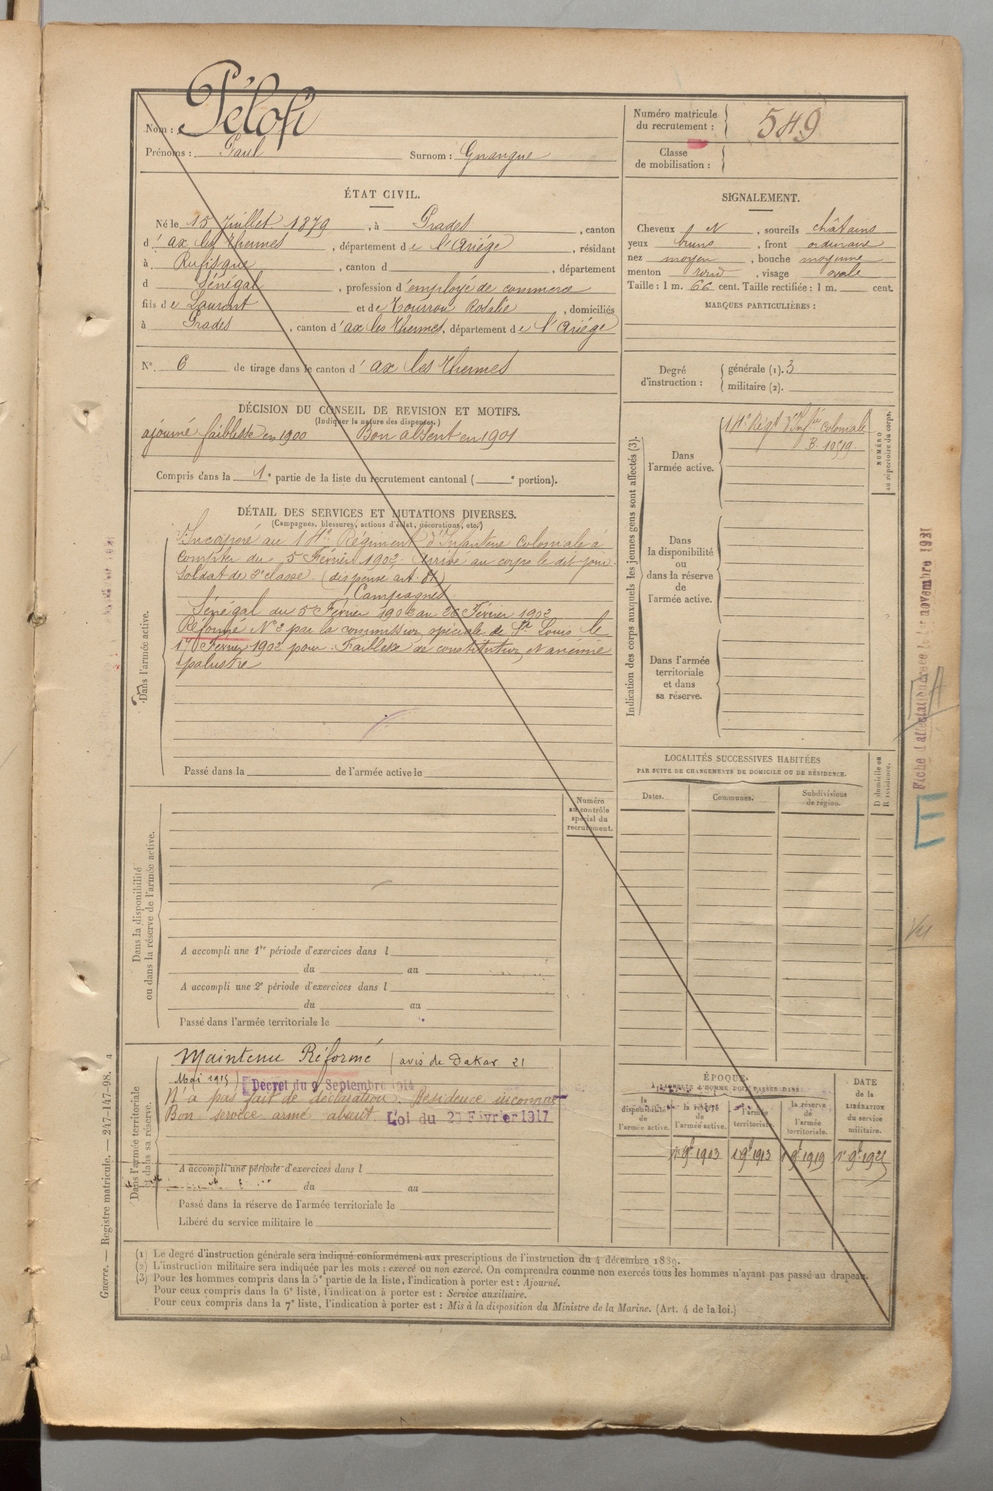 Nom : Pélofi
Prénoms : Paul Surnom : Gnangue
Numéro matricule du recrutement : 549
Classe de mobilisation :
ÉTAT CIVIL.
Né le 15 Juillet 1879, à Prades, canton
d'ax les Thermes, département de l'Ariége, résidant
à Rufisque, canton d, département
d Sénégal, profession d'employé de commerce
fils de Laurent et de Tourrou Rosalie, domiciliés
à Prades, canton d'ax les Thermes, département de l'Ariége
N° 6 de tirage dans le canton d'ax les Thermes
SIGNALEMENT.
Cheveux N, sourcils châtains
yeux bruns, front ordinaire
nez moyen, bouche moyenne
menton rond, visage ovale
Taille : 1 m. 66 cent. Taille rectifiée : 1 m. cent.
MARQUES PARTICULIÈRES :
Degré d'instruction : générale (1). 3
militaire (2).
DÉCISION DU CONSEIL DE REVISION ET MOTIFS.
(Indiquer la nature des dispenses.)
ajourné faiblesse en 1900 Bon absent en 1901
Compris dans la 1e partie de la liste du recrutement cantonal ( e portion).
DÉTAIL DES SERVICES ET MUTATIONS DIVERSES.
(Campagnes, blessures, actions d'éclat, décorations, etc.)
Dans l'armée active.
Incorporé au 14e Régiment d'Infanterie Coloniale à
compter du 5 Février 1902 arrivé au corps le dit jour
Soldat de 2e classe (dispense art.
Campagnes
Sénégal du 5 Février 1902 au 26 Février 1902
Réformé N° 2 par la commission spéciale de St Louis le
Février 1902 pour Faiblesse de constitution et anémie
palustre
Passé dans la de l'armée active le
Indication des corps auxquels les jeunes gens sont affectés (3).
NUMÉRO au répertoire du corps.
Dans l'armée active.
14e Régt d'Infie Coloniale
Dans la disponibilité ou dans la réserve de l'armée active.
Dans l'armée territoriale et dans sa réserve.
LOCALITÉS SUCCESSIVES HABITÉES
PAR SUITE DE CHANGEMENTS DE DOMICILE OU DE RÉSIDENCE.
Dates. Communes. Subdivisions de région. D domicile ou R résidence.
Numéro au contrôle spécial du recrutement.
Dans la disponibilité ou dans la réserve de l'armée active.
A accompli une 1re période d'exercices dans l
du au
A accompli une 2e période d'exercices dans l
du au
Passé dans l'armée territoriale le
Dans l'armée territoriale et dans sa réserve.
Maintenu Réformé (avis de Dakar 21
Mai 1915) Décret du 9 Septembre 1914
N'a pas fait de déclaration. Résidence inconnue
Bon service armé absent Loi du 20 Février 1917
A accompli une période d'exercices dans l
du au
Passé dans la réserve de l'armée territoriale le
Libéré du service militaire le
ÉPOQUE
À LAQUELLE L'HOMME DOIT PASSER DANS
la disponibilité de l'armée active. la réserve de l'armée active. l'armée territoriale. la réserve de l'armée territoriale.
DATE de la LIBÉRATION du service militaire.
1er 9bre 1903 1er 9bre 1913 1er 9bre 1919 1er 9bre 1925
(1) Le degré d'instruction générale sera indiqué conformément aux prescriptions de l'instruction du 4 décembre 1889.
(2) L'instruction militaire sera indiquée par les mots : exercé ou non exercé. On comprendra comme non exercés tous les hommes n'ayant pas passé au drapeau.
(3) Pour les hommes compris dans la 5e partie de la liste, l'indication à porter est : Ajourné.
Pour ceux compris dans la 6e liste, l'indication à porter est : Service auxiliaire.
Pour ceux compris dans la 7e liste, l'indication à porter est : Mis à la disposition du Ministre de la Marine. (Art. 4 de la loi.)
Guerre. — Registre matricule. — 247-147-98.
Fiche d'affectation
novembre 1921